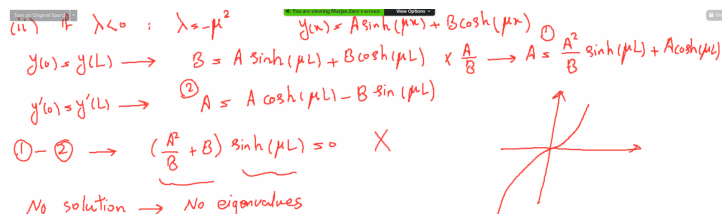 Turn on Original Sound
You are viewing Marjan Zare's screen View Options
(ii) If λ<0 : λ=-μ² y(x) = A sinh(μx) + B cosh(μx)
y(0) = y(L) → B = A sinh(μL) + B cosh(μL) × A/B → ① A = A²/B sinh(μL) + A cosh(μL)
y'(0) = y'(L) → ② A = A cosh(μL) - B sin(μL)
① - ② → (A²/B + B) sinh(μL) = 0 X
No solution → No eigenvalues